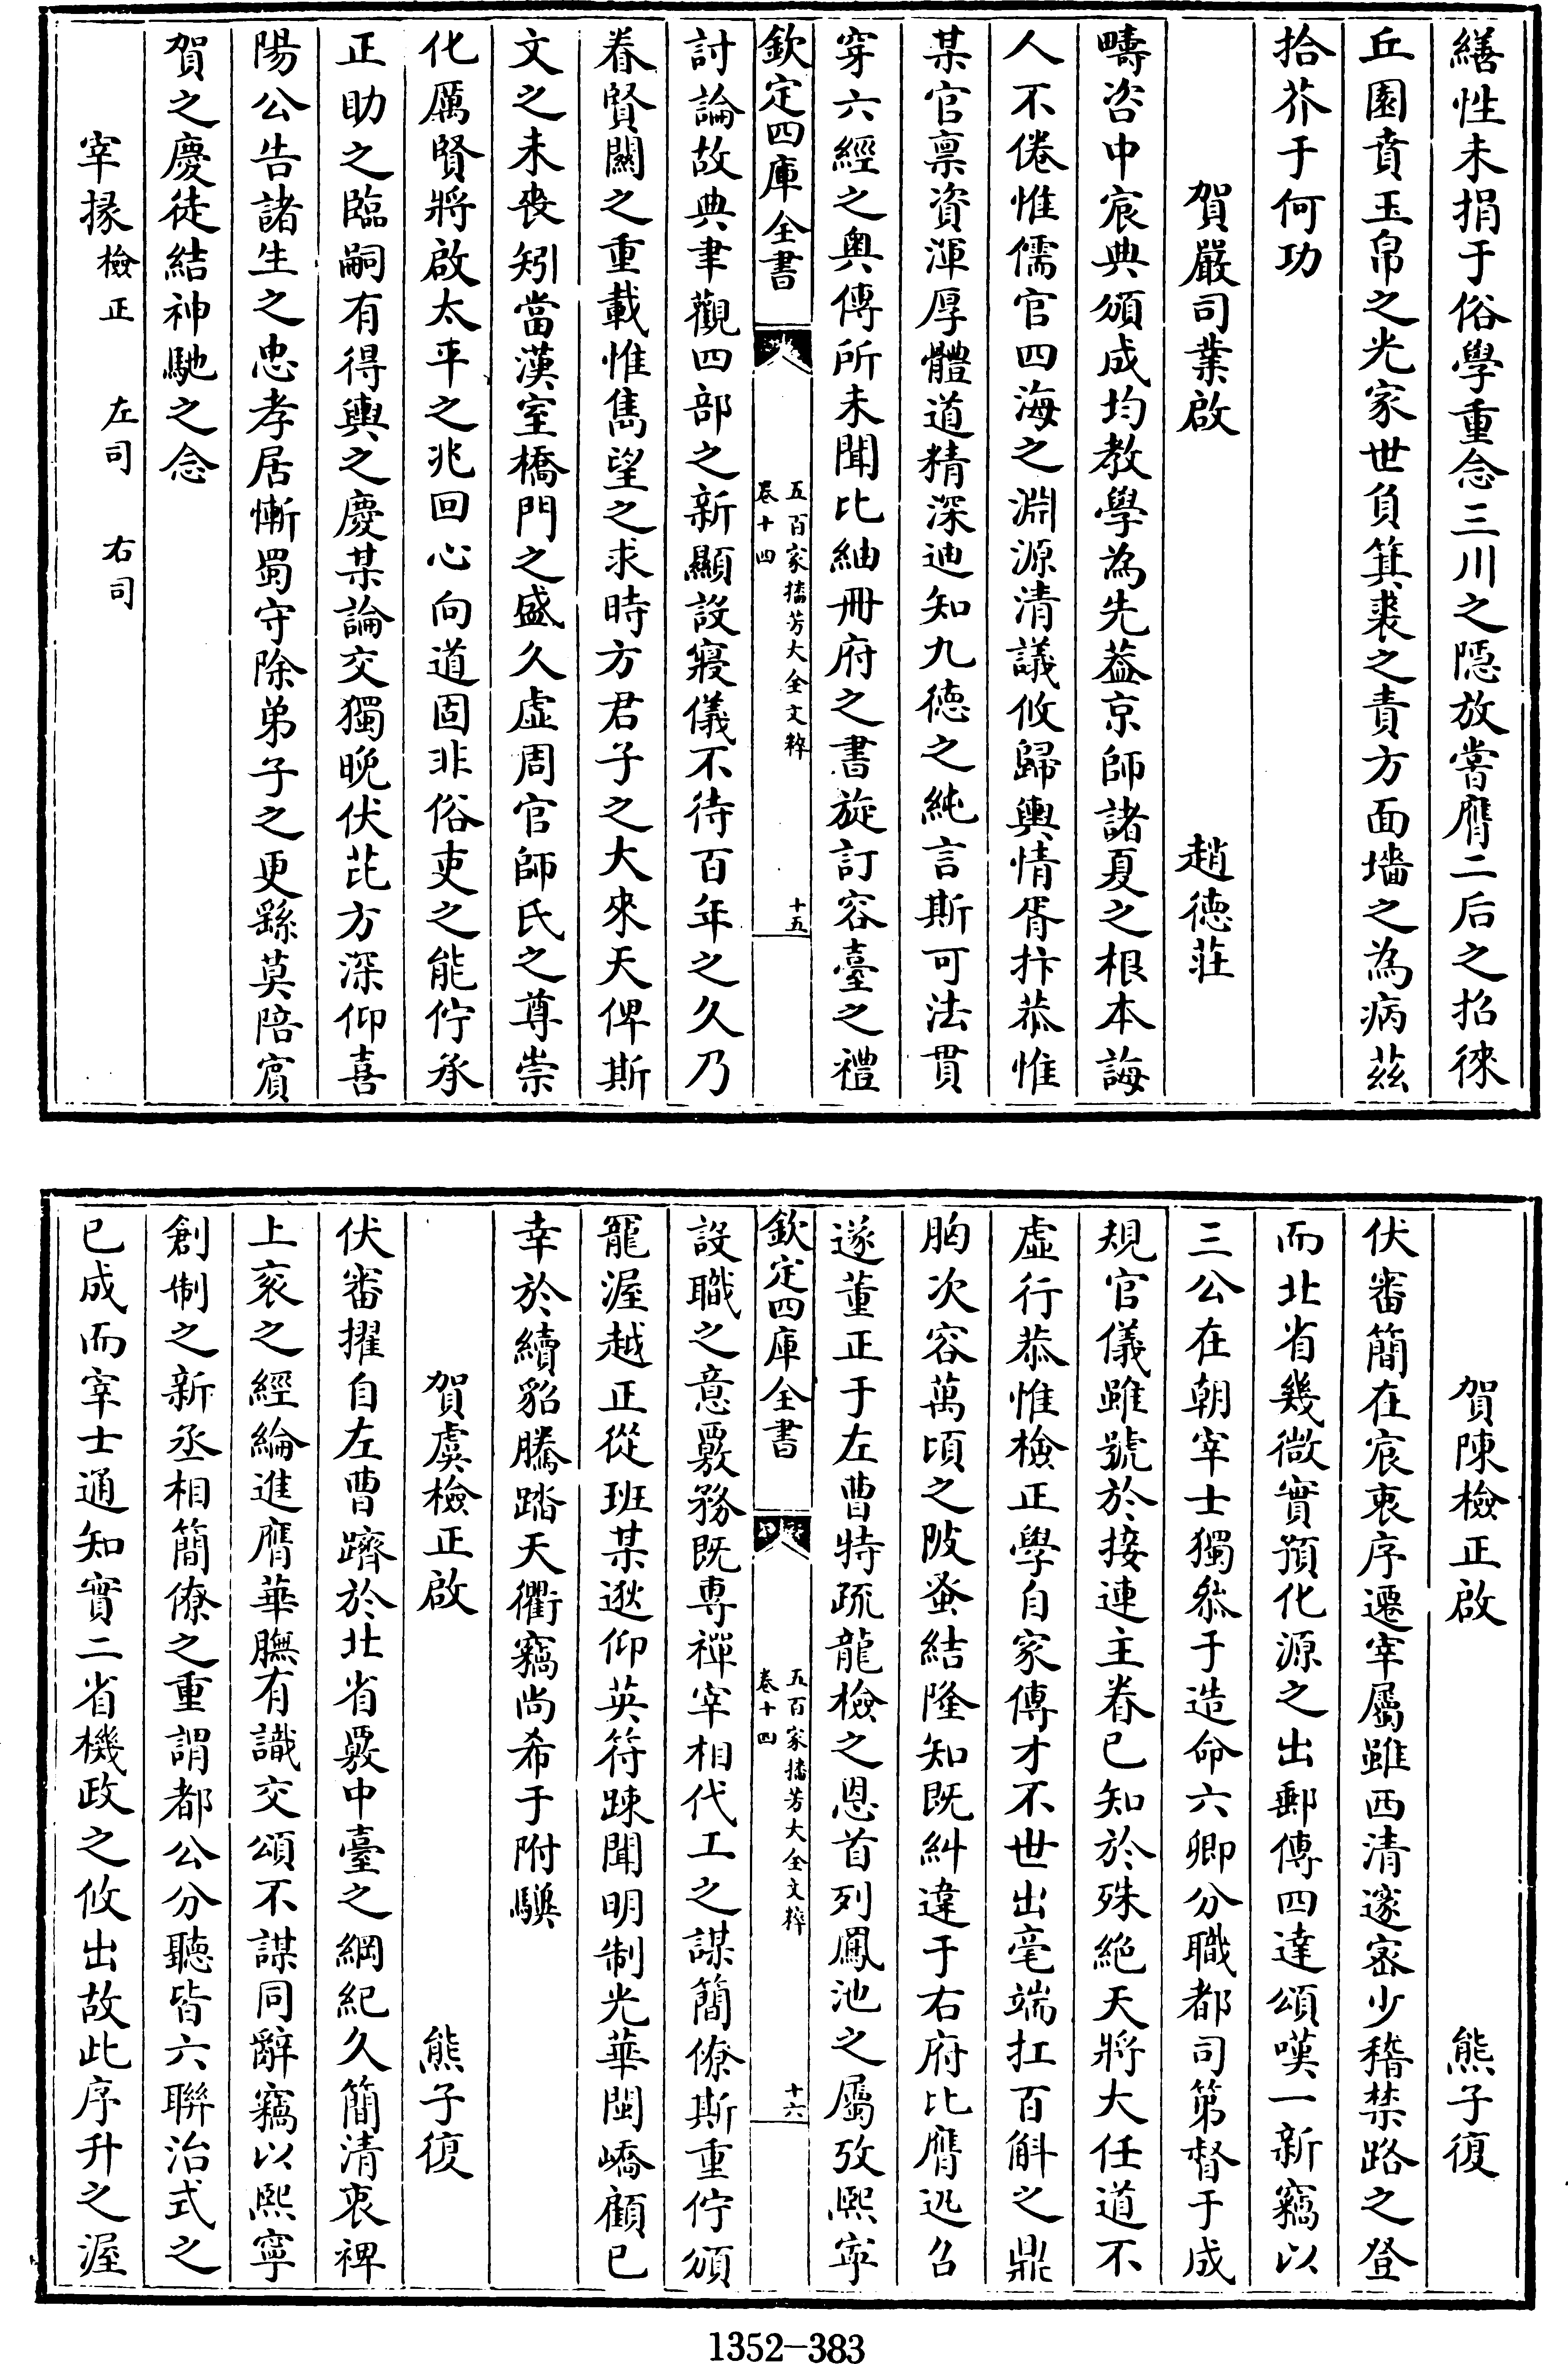 繕性未捐于俗學重念三川之隠放嘗膺二后之招徠
丘園賁玉帛之光家世負箕裘之責方面墻之為病茲
拾芥于何功
賀嚴司業啟 趙德莊
疇咨中宸典頒成均教學為先葢京師諸夏之根本誨
人不倦惟儒官四海之淵源清議攸歸輿情胥抃恭惟
某官禀資渾厚體道精深迪知九德之純言斯可法貫
穿六經之奥傳所未聞比紬冊府之書旋訂容臺之禮
欽定四庫全書 五百家播芳大全文粹 卷十四 十五
討論故典聿觀四部之新顯設寢儀不待百年之久乃
眷賢關之重載惟雋望之求時方君子之大來天俾斯
文之未喪矧當漢室橋門之盛久虛周官師氏之尊崇
化厲賢將啟太平之兆回心向道固非俗吏之能佇承
正助之臨嗣有得輿之慶某論交獨晚伏芘方深仰喜
陽公告諸生之忠孝居慚蜀守除弟子之更繇莫陪賔
賀之慶徒結神馳之念
宰掾檢正 左司 右司
賀陳檢正啟 熊子復
伏審簡在宸衷序遷宰屬雖西清邃宻少稽禁路之登
而北省幾微實預化源之出郵傳四達頌嘆一新竊以
三公在朝宰士獨叅于造命六卿分職都司第督于成
規官儀雖號於接連主眷已知於殊絶天將大任道不
虛行恭惟檢正學自家傳才不世出毫端扛百斛之鼎
胸次容萬頃之陂蚤結隆知既糾違于右府比膺迅召
遂董正于左曹特疏龍檢之恩首列鳳池之屬攷熙寜
欽定四庫全書 五百家播芳大全文粹 卷十四 十六
設職之意覈務既専禆宰相代工之謀簡僚斯重佇頒
寵渥越正從班某逖仰英符踈聞明制光華閩嶠顧已
幸於續貂騰踏天衢竊尚希于附驥
賀虞檢正啟 熊子復
伏審擢自左曹躋於北省覈中臺之綱紀久簡清衷裨
上衮之經綸進膺華膴有識交頌不謀同辭竊以熙寧
創制之新丞相簡僚之重謂都公分聽皆六聨治式之
已成而宰士通知實二省機政之攸出故此序升之渥
1352-383